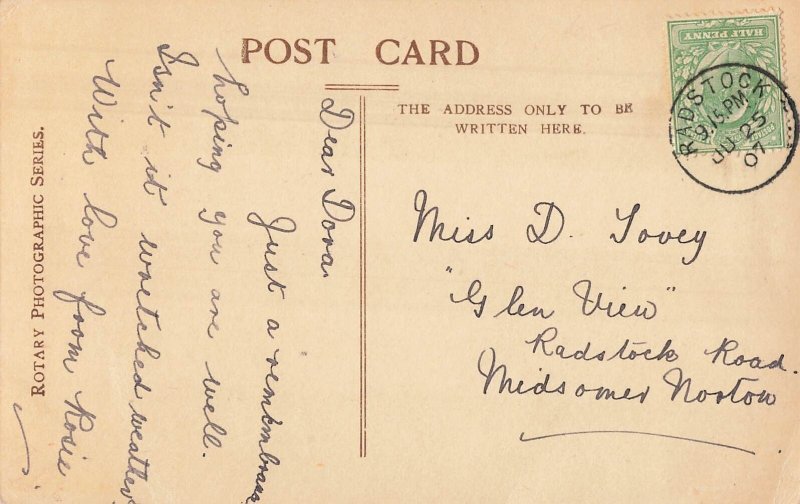 POST CARD
THE ADDRESS ONLY TO BE
WRITTEN HERE.
HALF PENNY
RADSTOCK
9.15 PM
JU 25
07
Dear Dora
Just a remembrance
hoping you are well.
Isn't it wretched weather
With love from Rosie
Miss D. Tovey
"Glen View"
Radstock Road.
Midsomer Norton
ROTARY PHOTOGRAPHIC SERIES.